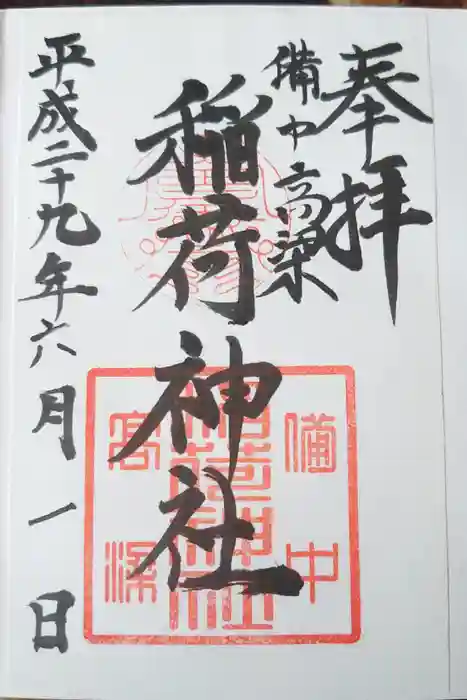 奉拝
備中高梁
稲荷神社
平成二十九年六月一日
備中
稲荷神社
高梁